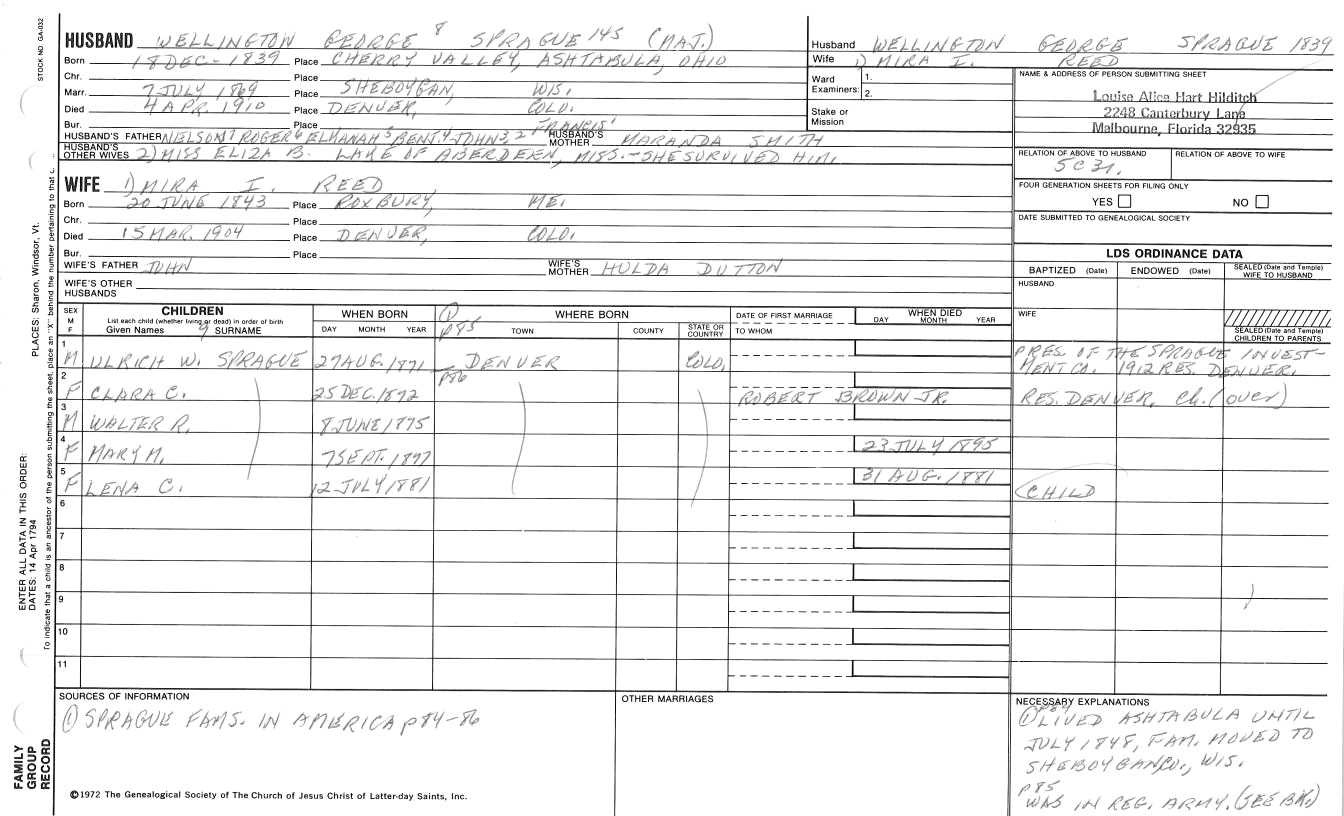 STOCK NO. GA-032
HUSBAND WELLINGTON GEORGE 8 SPRAGUE 145 (MAJ.)
Born 18 DEC - 1839 Place CHERRY VALLEY, ASHTABULA, OHIO
Chr. Place
Marr. 7 JULY 1869 Place SHEBOYGAN, WIS.
Died 4 APR. 1910 Place DENVER, COLO.
Bur. Place
HUSBAND'S FATHER NELSON 7 ROGER 6 ELHANAH 5 BENJ. 4 JOHN 3, 2 FRANCIS 1 HUSBAND'S MOTHER MARANDA SMITH
HUSBAND'S OTHER WIVES 2) MISS ELIZA B. LAKE OF ABERDEEN, MISS. - SHE SURVIVED HIM.
WIFE 1) MIRA I. REED
Born 20 JUNE 1843 Place ROXBURY, ME.
Chr. Place
Died 15 MAR. 1904 Place DENVER, COLO.
Bur. Place
WIFE'S FATHER JOHN WIFE'S MOTHER HULDA DUTTON
WIFE'S OTHER HUSBANDS
Husband WELLINGTON GEORGE SPRAGUE 1839
Wife 1) MIRA I. REED
Ward Examiners: 1.
2.
Stake or Mission
NAME & ADDRESS OF PERSON SUBMITTING SHEET
Louise Alice Hart Hilditch
2248 Canterbury Lane
Melbourne, Florida 32935
RELATION OF ABOVE TO HUSBAND RELATION OF ABOVE TO WIFE
5C3r.
FOUR GENERATION SHEETS FOR FILING ONLY
YES NO
DATE SUBMITTED TO GENEALOGICAL SOCIETY
LDS ORDINANCE DATA
BAPTIZED (Date) ENDOWED (Date) SEALED (Date and Temple) WIFE TO HUSBAND
HUSBAND
WIFE
SEALED (Date and Temple) CHILDREN TO PARENTS
SEX M F CHILDREN List each child (whether living or dead) in order of birth Given Names 9 SURNAME
WHEN BORN DAY MONTH YEAR
① P85 WHERE BORN TOWN COUNTY STATE OR COUNTRY
DATE OF FIRST MARRIAGE TO WHOM
WHEN DIED DAY MONTH YEAR
1 M ULRICH W. SPRAGUE 27 AUG. 1871 DENVER COLO. PRES. OF THE SPRAGUE INVEST-
MENT CO. 1912 RES. DENVER.
P86
2 F CLARA C. 25 DEC. 1872 ROBERT BROWN JR. RES. DENVER, Ch. (over)
3 M WALTER R. 8 JUNE 1875
4 F MARY M. 7 SEPT. 1877 23 JULY 1895
5 F LENA C. 12 JULY 1881 31 AUG. 1881 CHILD
6
7
8
9
10
11
SOURCES OF INFORMATION
① SPRAGUE FAMS. IN AMERICA p84-86
OTHER MARRIAGES
NECESSARY EXPLANATIONS
① P84 LIVED ASHTABULA UNTIL
JULY 1848, FAM. MOVED TO
SHEBOYGAN CO., WIS.
P85
WAS IN REG. ARMY. (SEE BK.)
©1972 The Genealogical Society of The Church of Jesus Christ of Latter-day Saints, Inc.
FAMILY GROUP RECORD
ENTER ALL DATA IN THIS ORDER:
DATES: 14 Apr 1794
PLACES: Sharon, Windsor, Vt.
To indicate that a child is an ancestor of the person submitting the sheet, place an "X" behind the number pertaining to that c